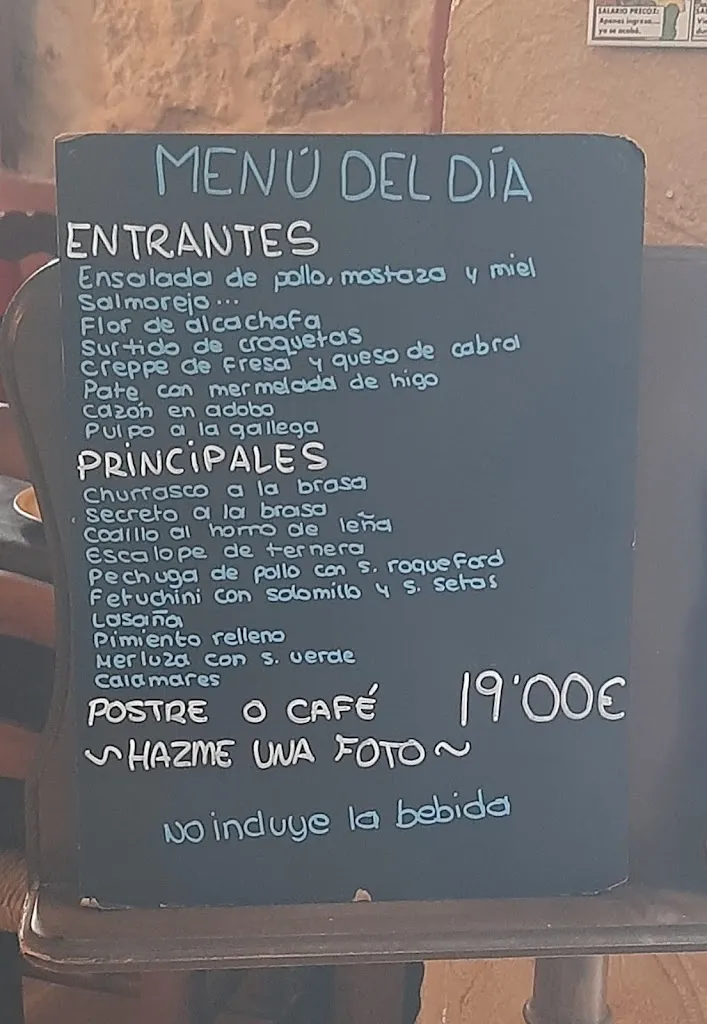 SALARIO PRECOZ:
Apenas ingresa...
ya se acabó.
MENÚ DEL DÍA
ENTRANTES
Ensalada de pollo, mostaza y miel
Salmorejo...
Flor de alcachofa
Surtido de croquetas
Creppe de fresa y queso de cabra
Pate con mermelada de higo
Cazón en adobo
Pulpo a la gallega
PRINCIPALES
Churrasco a la brasa
Secreto a la brasa
Codillo al horno de leña
Escalope de ternera
Pechuga de pollo con s. roqueford
Fetuchini con solomillo y s. setas
Lasaña
Pimiento relleno
Merluza con s. verde
Calamares
POSTRE O CAFÉ 19'00€
~HAZME UNA FOTO~
No incluye la bebida